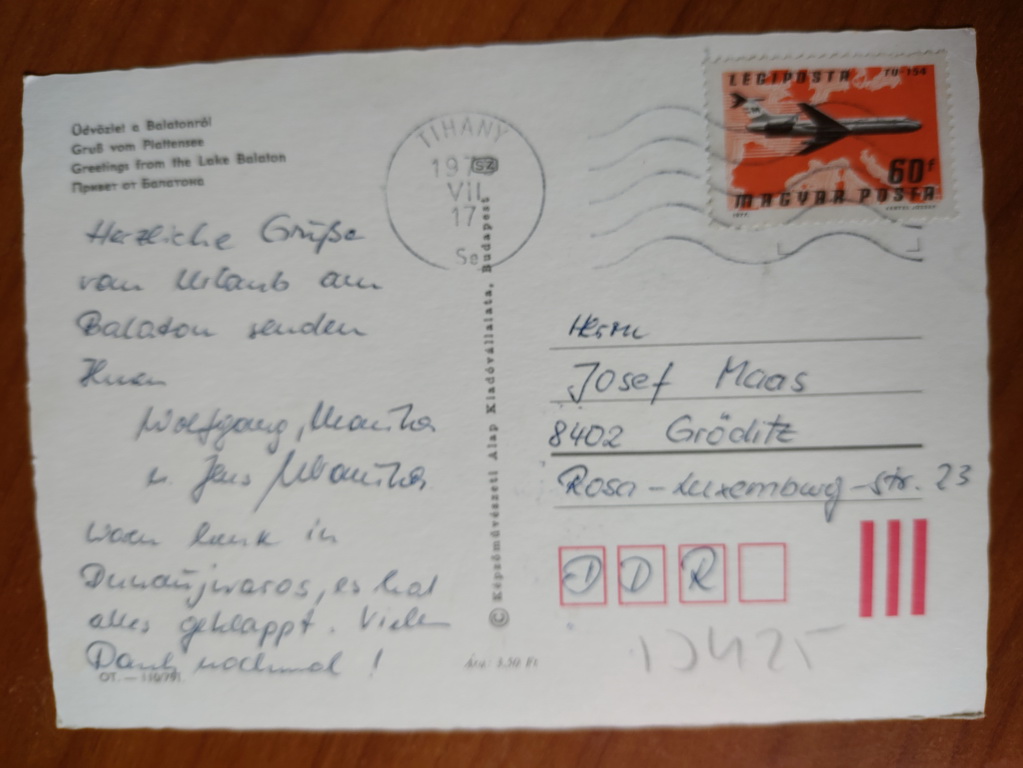 Üdvözlet a Balatonról
Gruß vom Plattensee
Greetings from the Lake Balaton
Привет от Балатона
TIHANY
VII.
17
LÉGIPOSTA TU-154
60f
MAGYAR POSTA
1977.
Herzliche Grüße
vom Urlaub am
Balaton senden
Ihnen
Wolfgang,
u. Jens
Waren heute in
Dunaújvaros, es hat
alles geklappt. Vielen
Dank nochmal!
OT. — 110/791.
© Képzőművészeti Alap Kiadóvállalata, Budapest
Ára: 3.50 Ft
Herrn
Josef Maas
8402 Gröditz
Rosa-Luxemburg-Str. 23
DDR